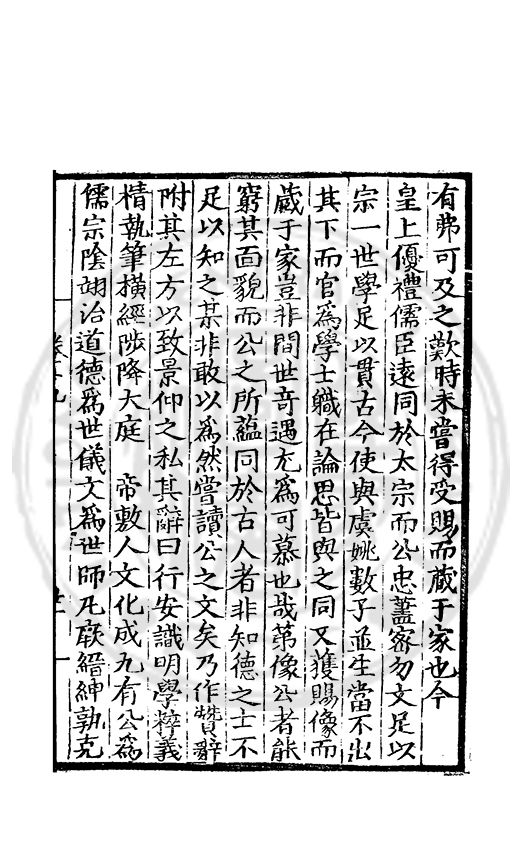 有弗可及之歎時未嘗得受賜而蔵于家也今
皇上優禮儒臣遠同於太宗而公忠藎密勿文足以
宗一世學足以貫古今使與虞姚數子並生當不出
其下而官為學士職在論思皆與之同又獲賜像而
蔵于家豈非間世奇遇尤為可慕也哉第像公者能
窮其面貌而公之所藴同於古人者非知德之士不
足以知之某非敢以為然嘗讀公之文矣乃作贊辭
附其左方以致景仰之私其辭曰行安識明學粹義
精執筆横經陟降大庭　帝敷人文化成九有公為
儒宗陰翊治道德為世儀文為世師凡厥縉紳孰克